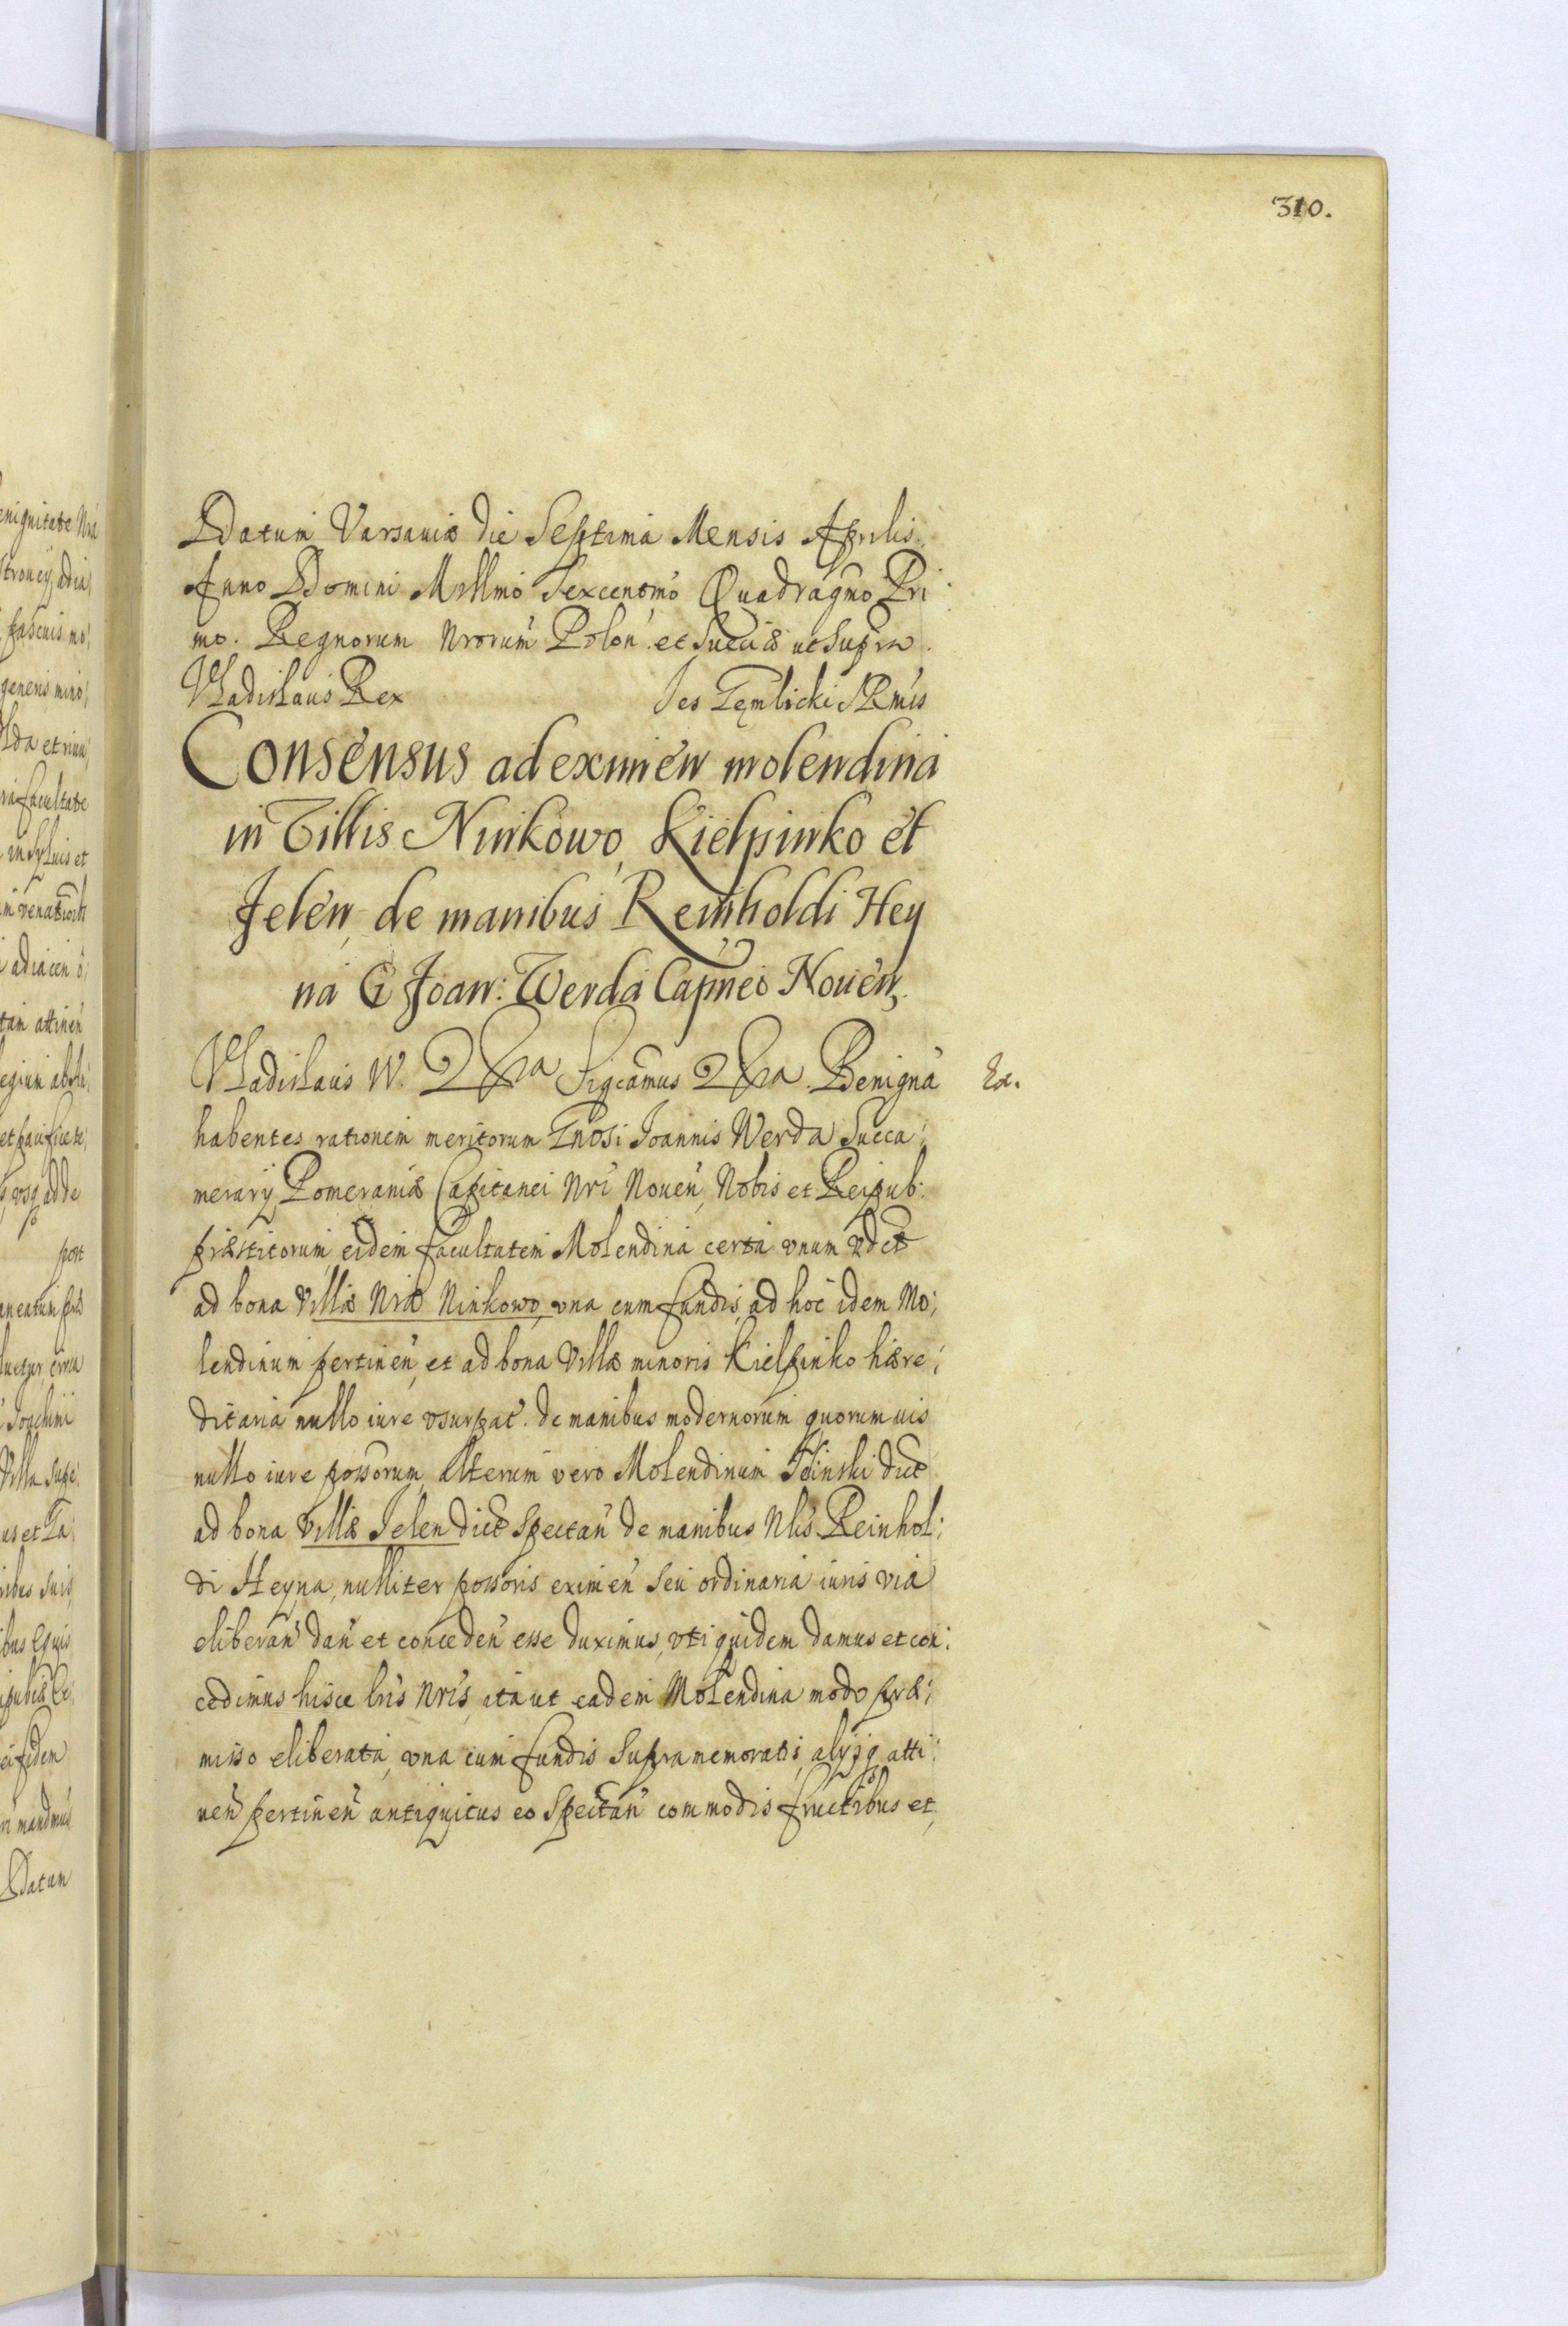 310.
Datum Varsaviæ die Septima Mensis Aprilis.
Anno Domini Millmo Sexcentmo Quadragmo Pri
mo. Regnorum Nrorum Polon et Sueciæ ut supra.
Vladislaus Rex Jes Gęmbicki SRMis
Consensus ad eximen molendina
in Villis Ninkowo, Kielpinko et
Jelen, de manibus Reinholdi Hey
na G Joan: Werda Capneo Noven.
Vladislaus IV. &ra Sigcamus &ra. Benigna Ex.
habentes rationem meritorum Gnosi Joannis Werda Succa:
merarij Pomeraniæ Capitanei Nri Noven, Nobis et Reipub:
præstitorum, eidem facultatem Molendina certa vnum
ad bona Villæ Nræ Ninkowo, vna cum fundis, ad hoc idem Mo:
lendinum pertinen, et ad bona Villæ minoris Kielpinko hære:
ditaria nullo iure vsurpat. de manibus modernorum quorumuis
nullo iure possorum, alterum vero Molendinum dict
ad bona Villæ Jelen dict spectan de manibus Nlis Reinhol:
di Heyna, nulliter possoris eximen seu ordinaria iuris via
eliberan dan et conceden esse duximus, vti quidem damus et con:
cedimus hisce lris Nris, ita ut eadem Molendina modo præ:
misso eliberata, vna cum fundis supramemoratis, alijsq atti:
nen pertinen antiquitus eo spectan commodis fructibus et